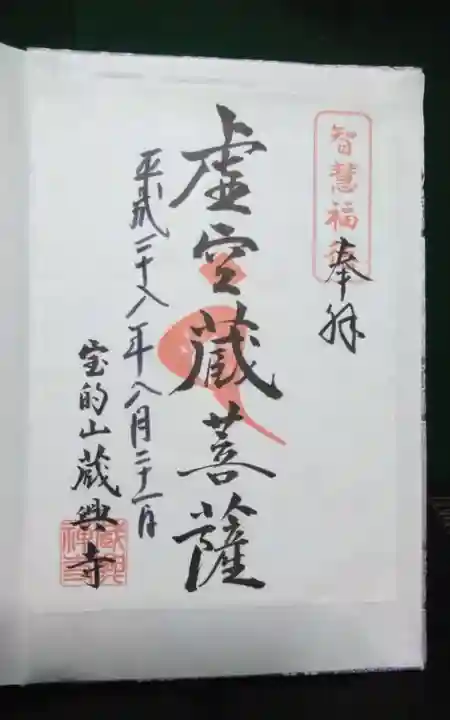 智慧福
奉拜
虚空蔵菩薩
平成二十八年八月二十一日
宝的山蔵興寺